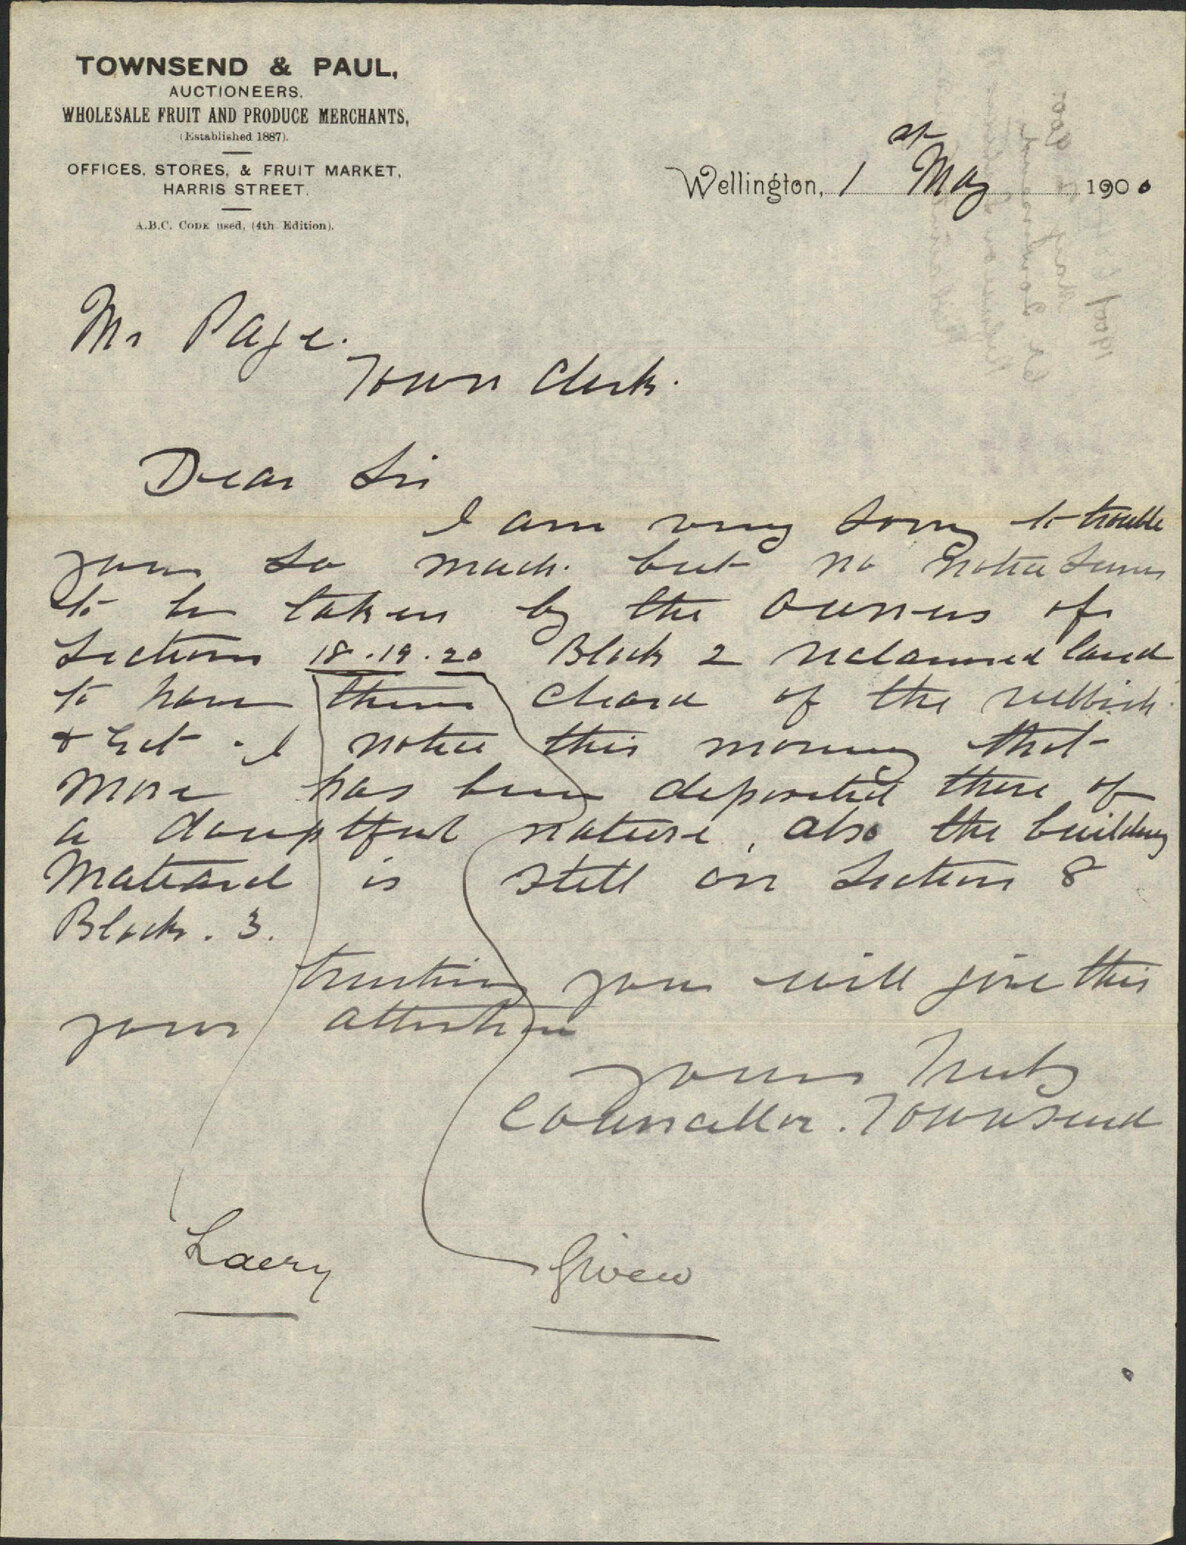 TOWNSEND & PAUL,
AUCTIONEERS.
WHOLESALE FRUIT AND PRODUCE MERCHANTS,
(Established 1887).
OFFICES, STORES, & FRUIT MARKET,
HARRIS STREET.
A.B.C. CODE used, (4th Edition).
Wellington, 1st May 1900
Mr Page.
Town Clerk.
Dear Sir
I am very sorry to trouble
you so much. but no notice seems
to be taken by the owners of
Sections 18.19.20 Block 2 reclaimed land
to have them cleard of the rubbish.
I notice this morning that
more has been deposited there of
a douptful nature, also the building
Material is still on Section 8
Block. 3.
trusting you will give this
your attention
yours truly
Councillor. Townsend
Laery
Given